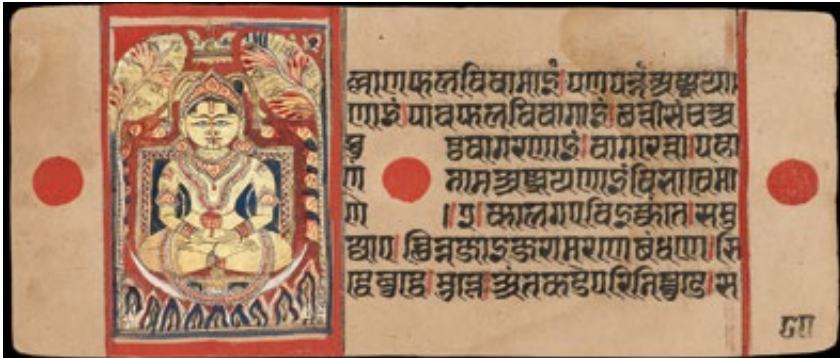 ल्लाणफलविवागाइं।पणपन्नंअज्झयणा
णाइं।पावफलविवागाइं।छत्तीसंचअ
पु ट्ठवागरणाइं।वागरित्ता।पहा
ण नामअज्झयणाइंविभावेमा
णे ।२ कालगएविइक्कंते।समु
ज्जाए।छिन्नजाइजरामरणबंधणे।सि
द्धेबुद्धे।मुत्ते।अंतकडेपरिनिव्वुडे।स